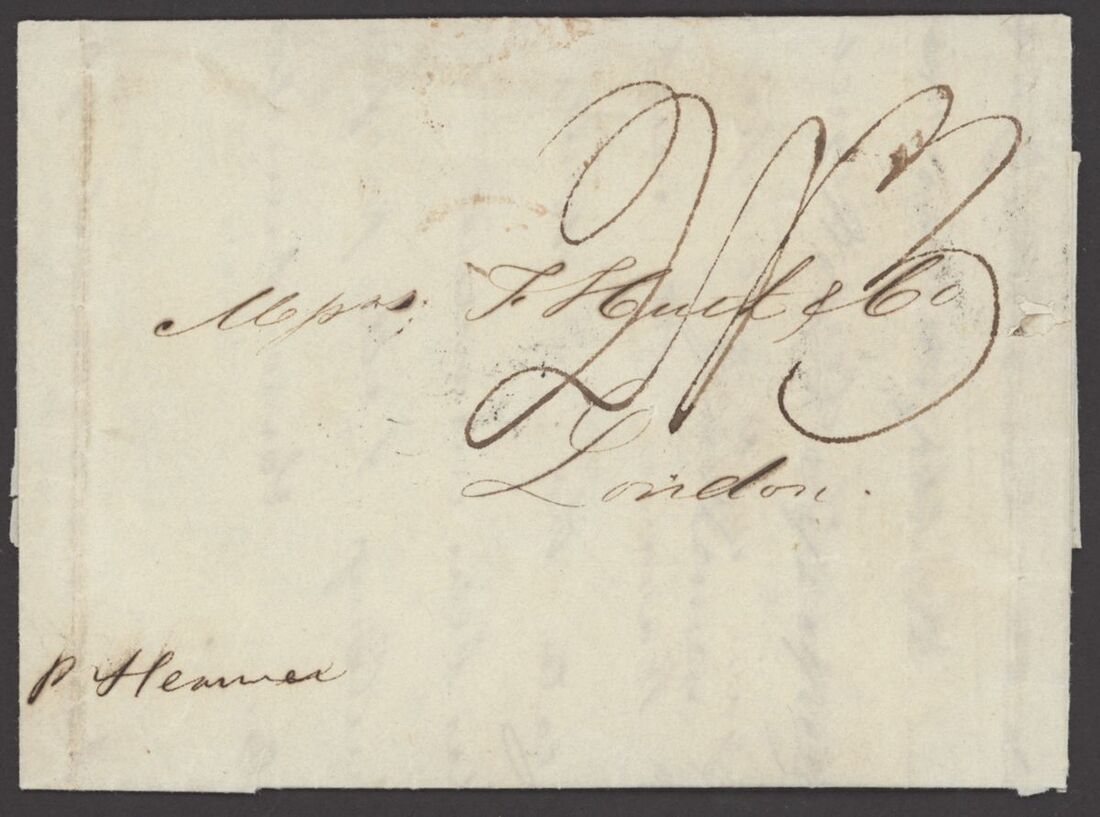 2/3
Messrs. F Huth & Co
London.
p Steamer